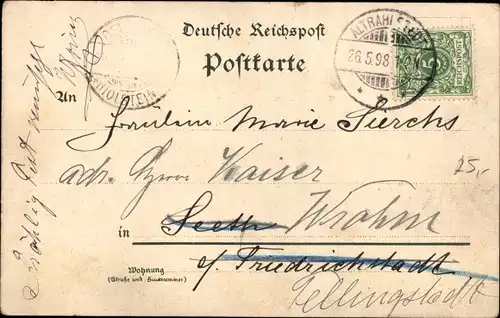 Deutsche Reichspost
Postkarte
ALTRAHLSTEDT
26.5.98
REICHSPOST
5
An Fräulein Marie Sierchs
adr. Kaiser
25,-
in Seeth Wrohm
Wohnung
(Straße und Hausnummer)
b/ Friedrichstadt
Tellingstedt
Fröhlig Fest wünscht